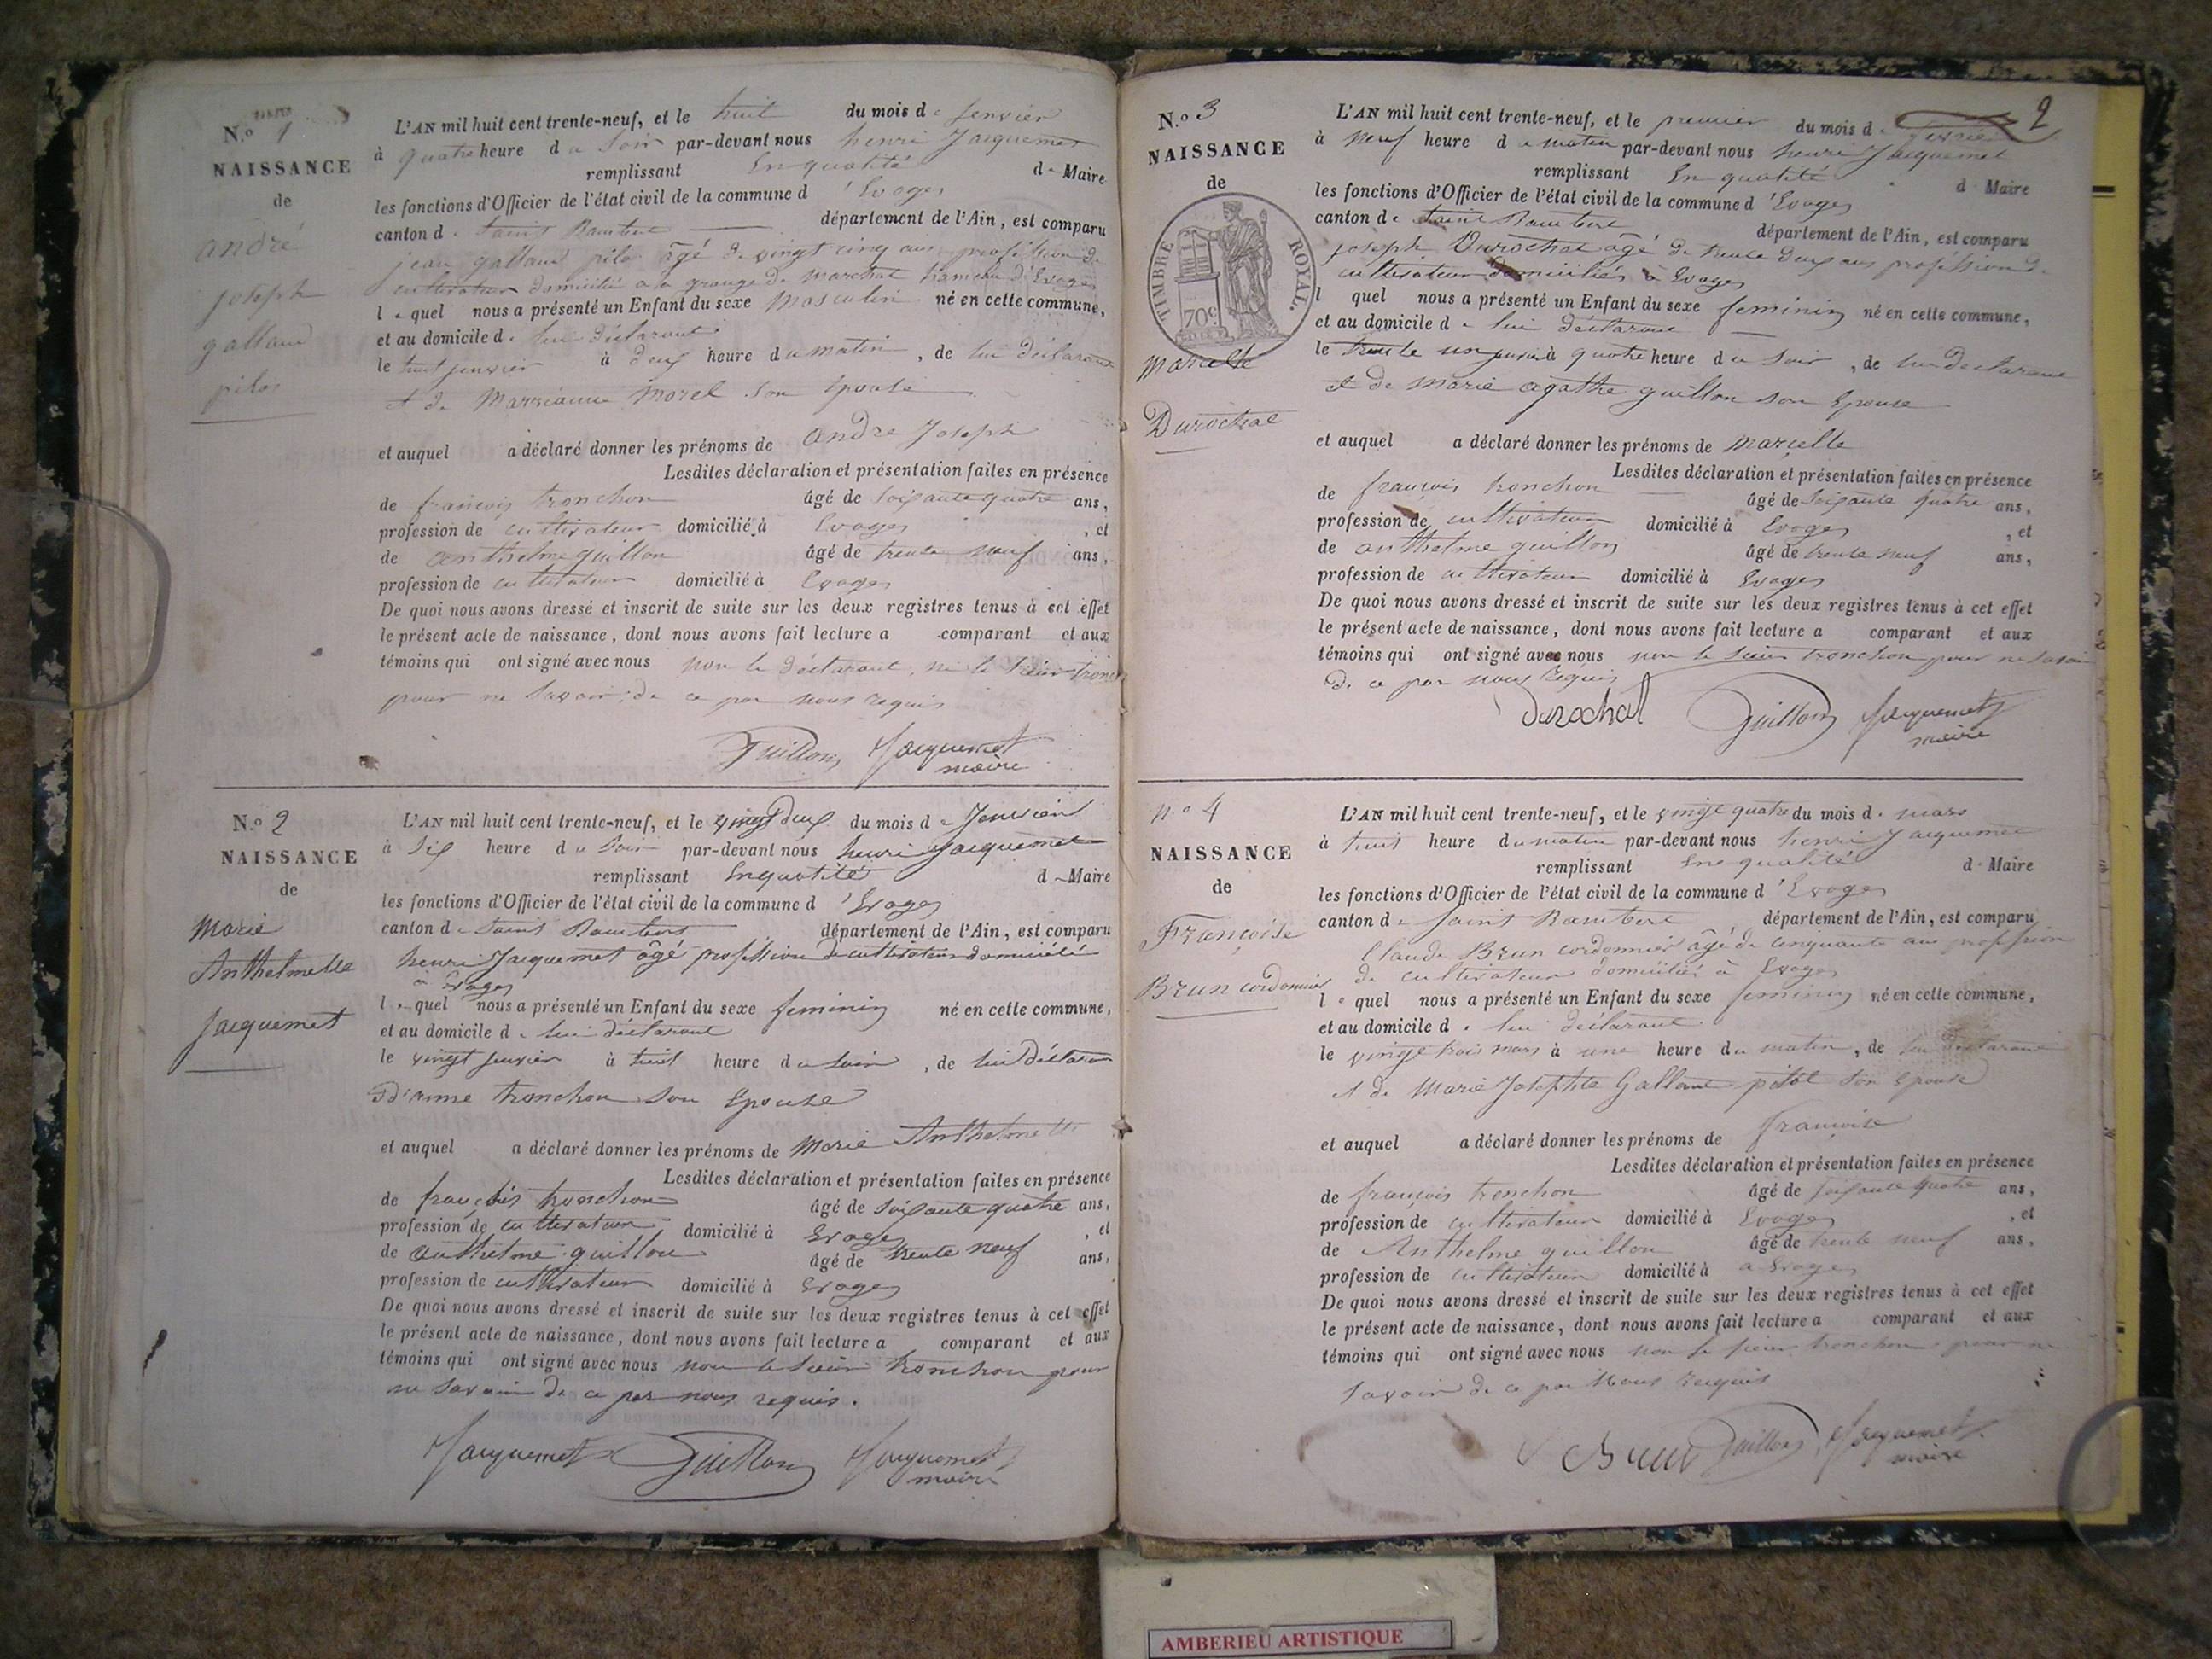 N.o 1
NAISSANCE
de
andré
joseph
galland
pilos
L'AN mil huit cent trente-neuf, et le huit du mois de Jenvier
à quatre heure du Soir par-devant nous henri Jacquemet
remplissant En qualité de Maire
les fonctions d'Officier de l'état civil de la commune d'Evoges
canton de Saint Rambert département de l'Ain, est comparu
jean galland pilos âgé de vingt cinq ans profession de
cultivateur domicilié a la grange de marchat hameau d'Evoges
lequel nous a présenté un Enfant du sexe masculin né en cette commune,
et au domicile de lui déclarant
le huit jenvier à deux heure du matin, de lui déclarant
et de Marrianne Morel son Epouse
et auquel a déclaré donner les prénoms de andre Joseph
Lesdites déclaration et présentation faites en présence
de francois tronchon âgé de soixante quatre ans,
profession de cultivateur domicilié à Evoges, et
de anthelme guillon âgé de trente neuf ans,
profession de cultivateur domicilié à Evoges
De quoi nous avons dressé et inscrit de suite sur les deux registres tenus à cet effet
le présent acte de naissance, dont nous avons fait lecture a comparant et aux
témoins qui ont signé avec nous non le déclarant, ni le sieur tronchon
pour ne savoir de ce par nous requis
Guillon Jacquemet
maire
N.o 2
NAISSANCE
de
Marie
Anthelmette
Jacquemet
L'AN mil huit cent trente-neuf, et le vingt deux du mois de Jenvier
à Six heure du soir par-devant nous henri Jacquemet
remplissant En qualité de Maire
les fonctions d'Officier de l'état civil de la commune d'Evoges
canton de Saint Rambert département de l'Ain, est comparu
henri Jacquemet âgé profession de cultivateur domicilié
à Evoges
lequel nous a présenté un Enfant du sexe feminin né en cette commune,
et au domicile de lui déclarant
le vingt jenvier à huit heure du soir, de lui déclaran
d'anne tronchon son Epouse
et auquel a déclaré donner les prénoms de Marie Anthelmette
Lesdites déclaration et présentation faites en présence
de françois tronchon âgé de soixante quatre ans,
profession de cultivateur domicilié à Evoges, et
de anthelme guillon âgé de trente neuf ans,
profession de cultivateur domicilié à Evoges
De quoi nous avons dressé et inscrit de suite sur les deux registres tenus à cet effet
le présent acte de naissance, dont nous avons fait lecture a comparant et aux
témoins qui ont signé avec nous non le sieur tronchon pour
ne savoir de ce par nous requis.
Jacquemet Guillon Jacquemet
maire
2
N.o 3
NAISSANCE
de
TIMBRE ROYAL.
70c
marcelle
Durochat
L'AN mil huit cent trente-neuf, et le premier du mois de
à neuf heure du matin par-devant nous henri Jacquemet
remplissant En qualité de Maire
les fonctions d'Officier de l'état civil de la commune d'Evoges
canton de Saint Rambert département de l'Ain, est comparu
joseph Durochat âgé de trente deux ans profession de
cultivateur domicilié à Evoges
l quel nous a présenté un Enfant du sexe feminin né en cette commune,
et au domicile de lui déclarant
le trente un à quatre heure du soir, de lui declarant
et de Marie agathe guillon son Epouse
et auquel a déclaré donner les prénoms de marcelle
Lesdites déclaration et présentation faites en présence
de françois tronchon âgé de soixante quatre ans,
profession de cultivateur domicilié à Evoges, et
de anthelme guillon âgé de trente neuf ans,
profession de cultivateur domicilié à Evoges
De quoi nous avons dressé et inscrit de suite sur les deux registres tenus à cet effet
le présent acte de naissance, dont nous avons fait lecture a comparant et aux
témoins qui ont signé avec nous non le sieur tronchon pour ne savoir
de ce par nous requis
Durochat Guillon Jacquemet
maire
no 4
NAISSANCE
de
Françoise
Brun cordonnier
L'AN mil huit cent trente-neuf, et le vingt quatre du mois de mars
à huit heure du matin par-devant nous henri Jacquemet
remplissant En qualité de Maire
les fonctions d'Officier de l'état civil de la commune d'Evoges
canton de Saint Rambert département de l'Ain, est comparu
Claude Brun cordonnier âgé de cinquante ans profession
de cultivateur domicilié à Evoges
lequel nous a présenté un Enfant du sexe feminin né en cette commune,
et au domicile de lui déclarant
le vingt trois mars à une heure du matin, de lui déclarant
et de Marie Josephte Galland pilot son Epouse
et auquel a déclaré donner les prénoms de françoise
Lesdites déclaration et présentation faites en présence
de françois tronchon âgé de soixante quatre ans,
profession de cultivateur domicilié à Evoges, et
de Anthelme guillon âgé de trente neuf ans,
profession de cultivateur domicilié à a Evoges
De quoi nous avons dressé et inscrit de suite sur les deux registres tenus à cet effet
le présent acte de naissance, dont nous avons fait lecture a comparant et aux
témoins qui ont signé avec nous non le sieur tronchon pour ne
savoir de ce par Nous requis
Brun Guillon Jacquemet
maire
AMBERIEU ARTISTIQUE